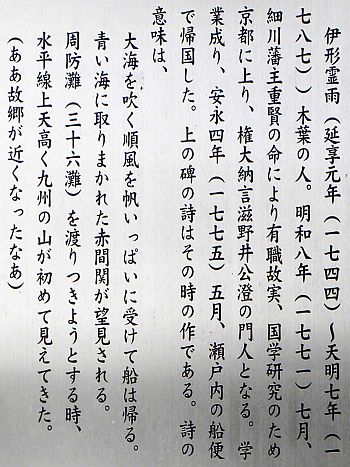 伊形霊雨（延享元年（一七四四）～天明七年（一
七八七））木葉の人。明和八年（一七七一）七月、
細川藩主重賢の命により有職故実、国学研究のため
京都に上り、権大納言滋野井公澄の門人となる。学
業成り、安永四年（一七七五）五月、瀬戸内の船便
で帰国した。上の碑の詩はその時の作である。詩の
意味は、
大海を吹く順風を帆いっぱいに受けて船は帰る。
青い海に取りまかれた赤間関が望見される。
周防灘（三十六灘）を渡りつきようとする時、
水平線上天高く九州の山が初めて見えてきた。
（ああ故郷が近くなったなあ）